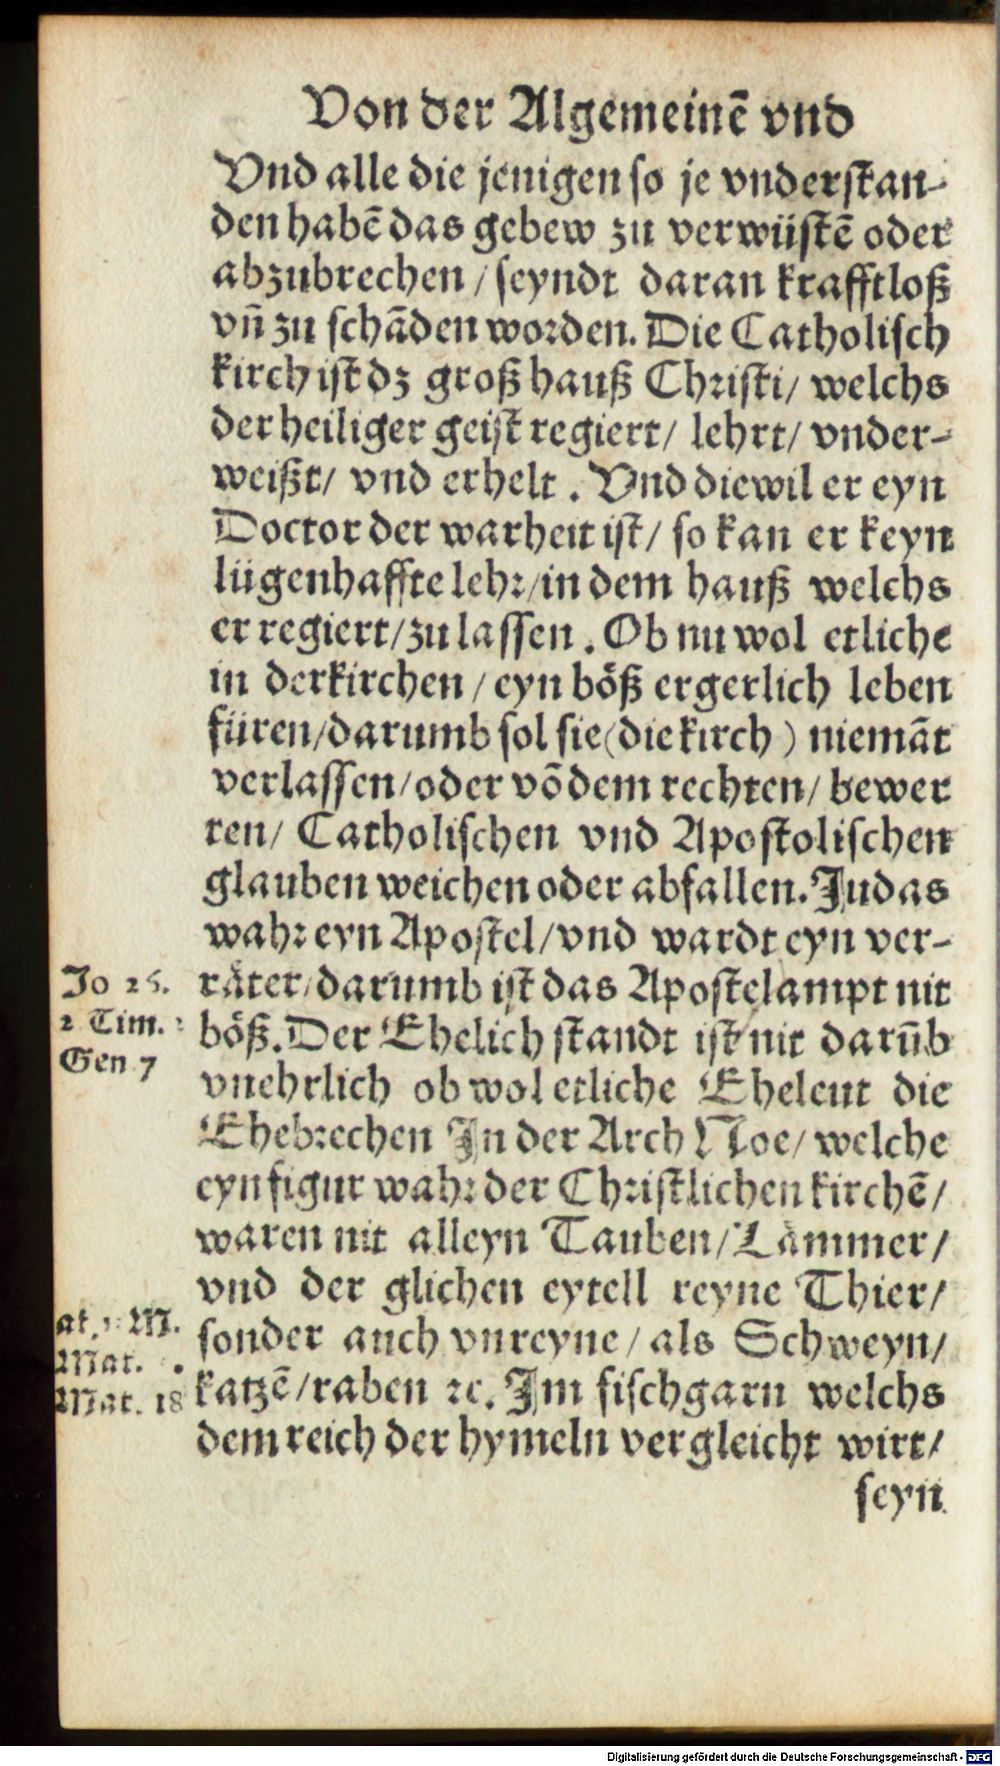 Von der Algemeinẽ vnd
Vnd alle die jenigen so je vnderstan-
den habẽ das gebew zu verwüstẽ oder
abzubrechen / seyndt daran krafftloß
vñ zu schãden worden. Die Catholisch
kirch ist dz groß hauß Christi / welchs
der heiliger geist regiert / lehrt / vnder-
weißt / vnd erhelt . Vnd diewil er eyn
Doctor der warheit ist / so kan er keyn
lügenhaffte lehr / in dem hauß welchs
er regiert / zu lassen . Ob nu wol etliche
in derkirchen / eyn böß ergerlich leben
füren / darumb sol sie (die kirch) niemãt
verlassen / oder võ dem rechten / bewer
ten / Catholischen vnd Apostolischen
glauben weichen oder abfallen. Judas
wahr eyn Apostel / vnd wardt eyn ver-
räter / darumb ist das Apostelampt nit
böß. Der Ehelich standt ist nit darũb
vnehrlich ob wol etliche Eheleut die
Ehebrechen In der Arch Noe / welche
eyn figur wahr der Christlichen kirchẽ /
waren nit alleyn Tauben / Lämmer /
vnd der glichen eytell reyne Thier /
sonder auch vnreyne / als Schweyn /
katzẽ / raben ꝛc. Im fischgarn welchs
dem reich der hymeln vergleicht wirt /
seyn
Jo
2 Tim.
Gen 7
at. M.
Mat.
Mat. 18
Digitalisierung gefördert durch die Deutsche Forschungsgemeinschaft - DFG